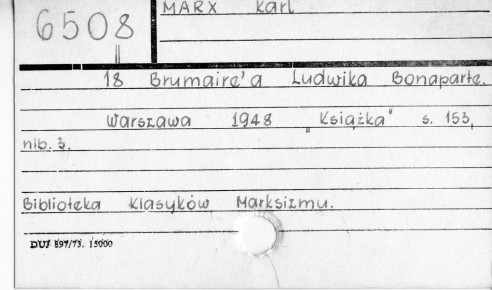 6508
MARX Karl
18 Brumaire'a Ludwika Bonaparte.
Warszawa 1948 „Książka" s. 153,
nlb. 3.
Biblioteka Klasyków Marksizmu.
DUJ 897/73. 15000